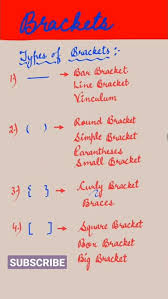 Brackets
Types of Brackets :-
1) — → Bar Bracket
Line Bracket
Vinculum
2) ( ) → Round Bracket
Simple Bracket
Parantheses
Small Bracket
3) { } → Curly Bracket
Braces
4) [ ] → Square Bracket
Box Bracket
Big Bracket
SUBSCRIBE